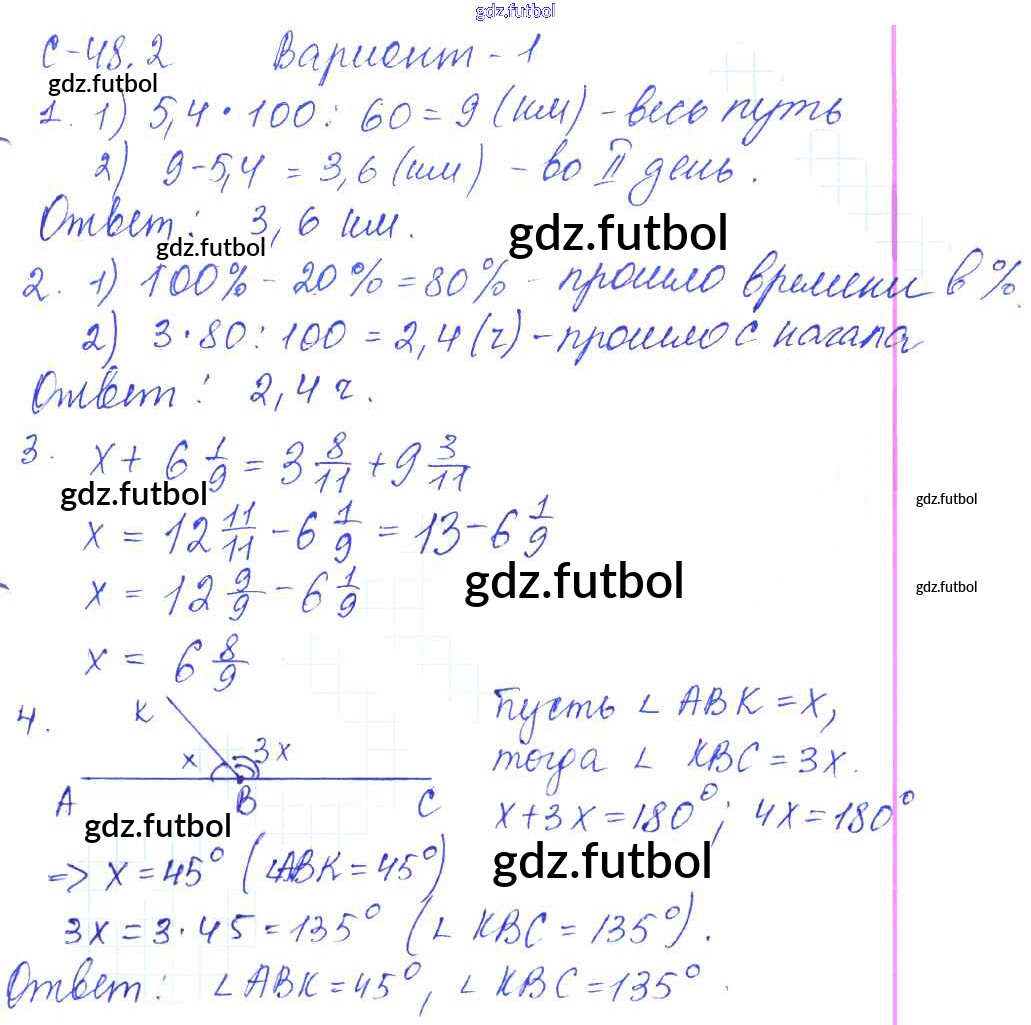 gdz.futbol
С-48.2 Вариант-1
gdz.futbol
1. 1) 5,4 · 100 : 60 = 9 (км) - весь путь
2) 9-5,4 = 3,6 (км) - во II день.
Ответ: 3,6 км.
gdz.futbol
gdz.futbol
2. 1) 100% - 20% = 80% - прошло времени в %.
2) 3·80:100 = 2,4 (ч) - прошло с начала
Ответ: 2,4 ч.
3. x + 6 1/9 = 3 8/11 + 9 3/11
gdz.futbol
gdz.futbol
x = 12 11/11 - 6 1/9 = 13 - 6 1/9
gdz.futbol
gdz.futbol
x = 12 9/9 - 6 1/9
x = 6 8/9
4. K
x 3x
A B C
gdz.futbol
Пусть ∠ ABK = x,
тогда ∠ KBC = 3x.
x + 3x = 180°; 4x = 180°
gdz.futbol
=> x = 45° (∠ABK = 45°)
3x = 3 · 45 = 135° (∠ KBC = 135°).
Ответ: ∠ABK = 45°, ∠ KBC = 135°.